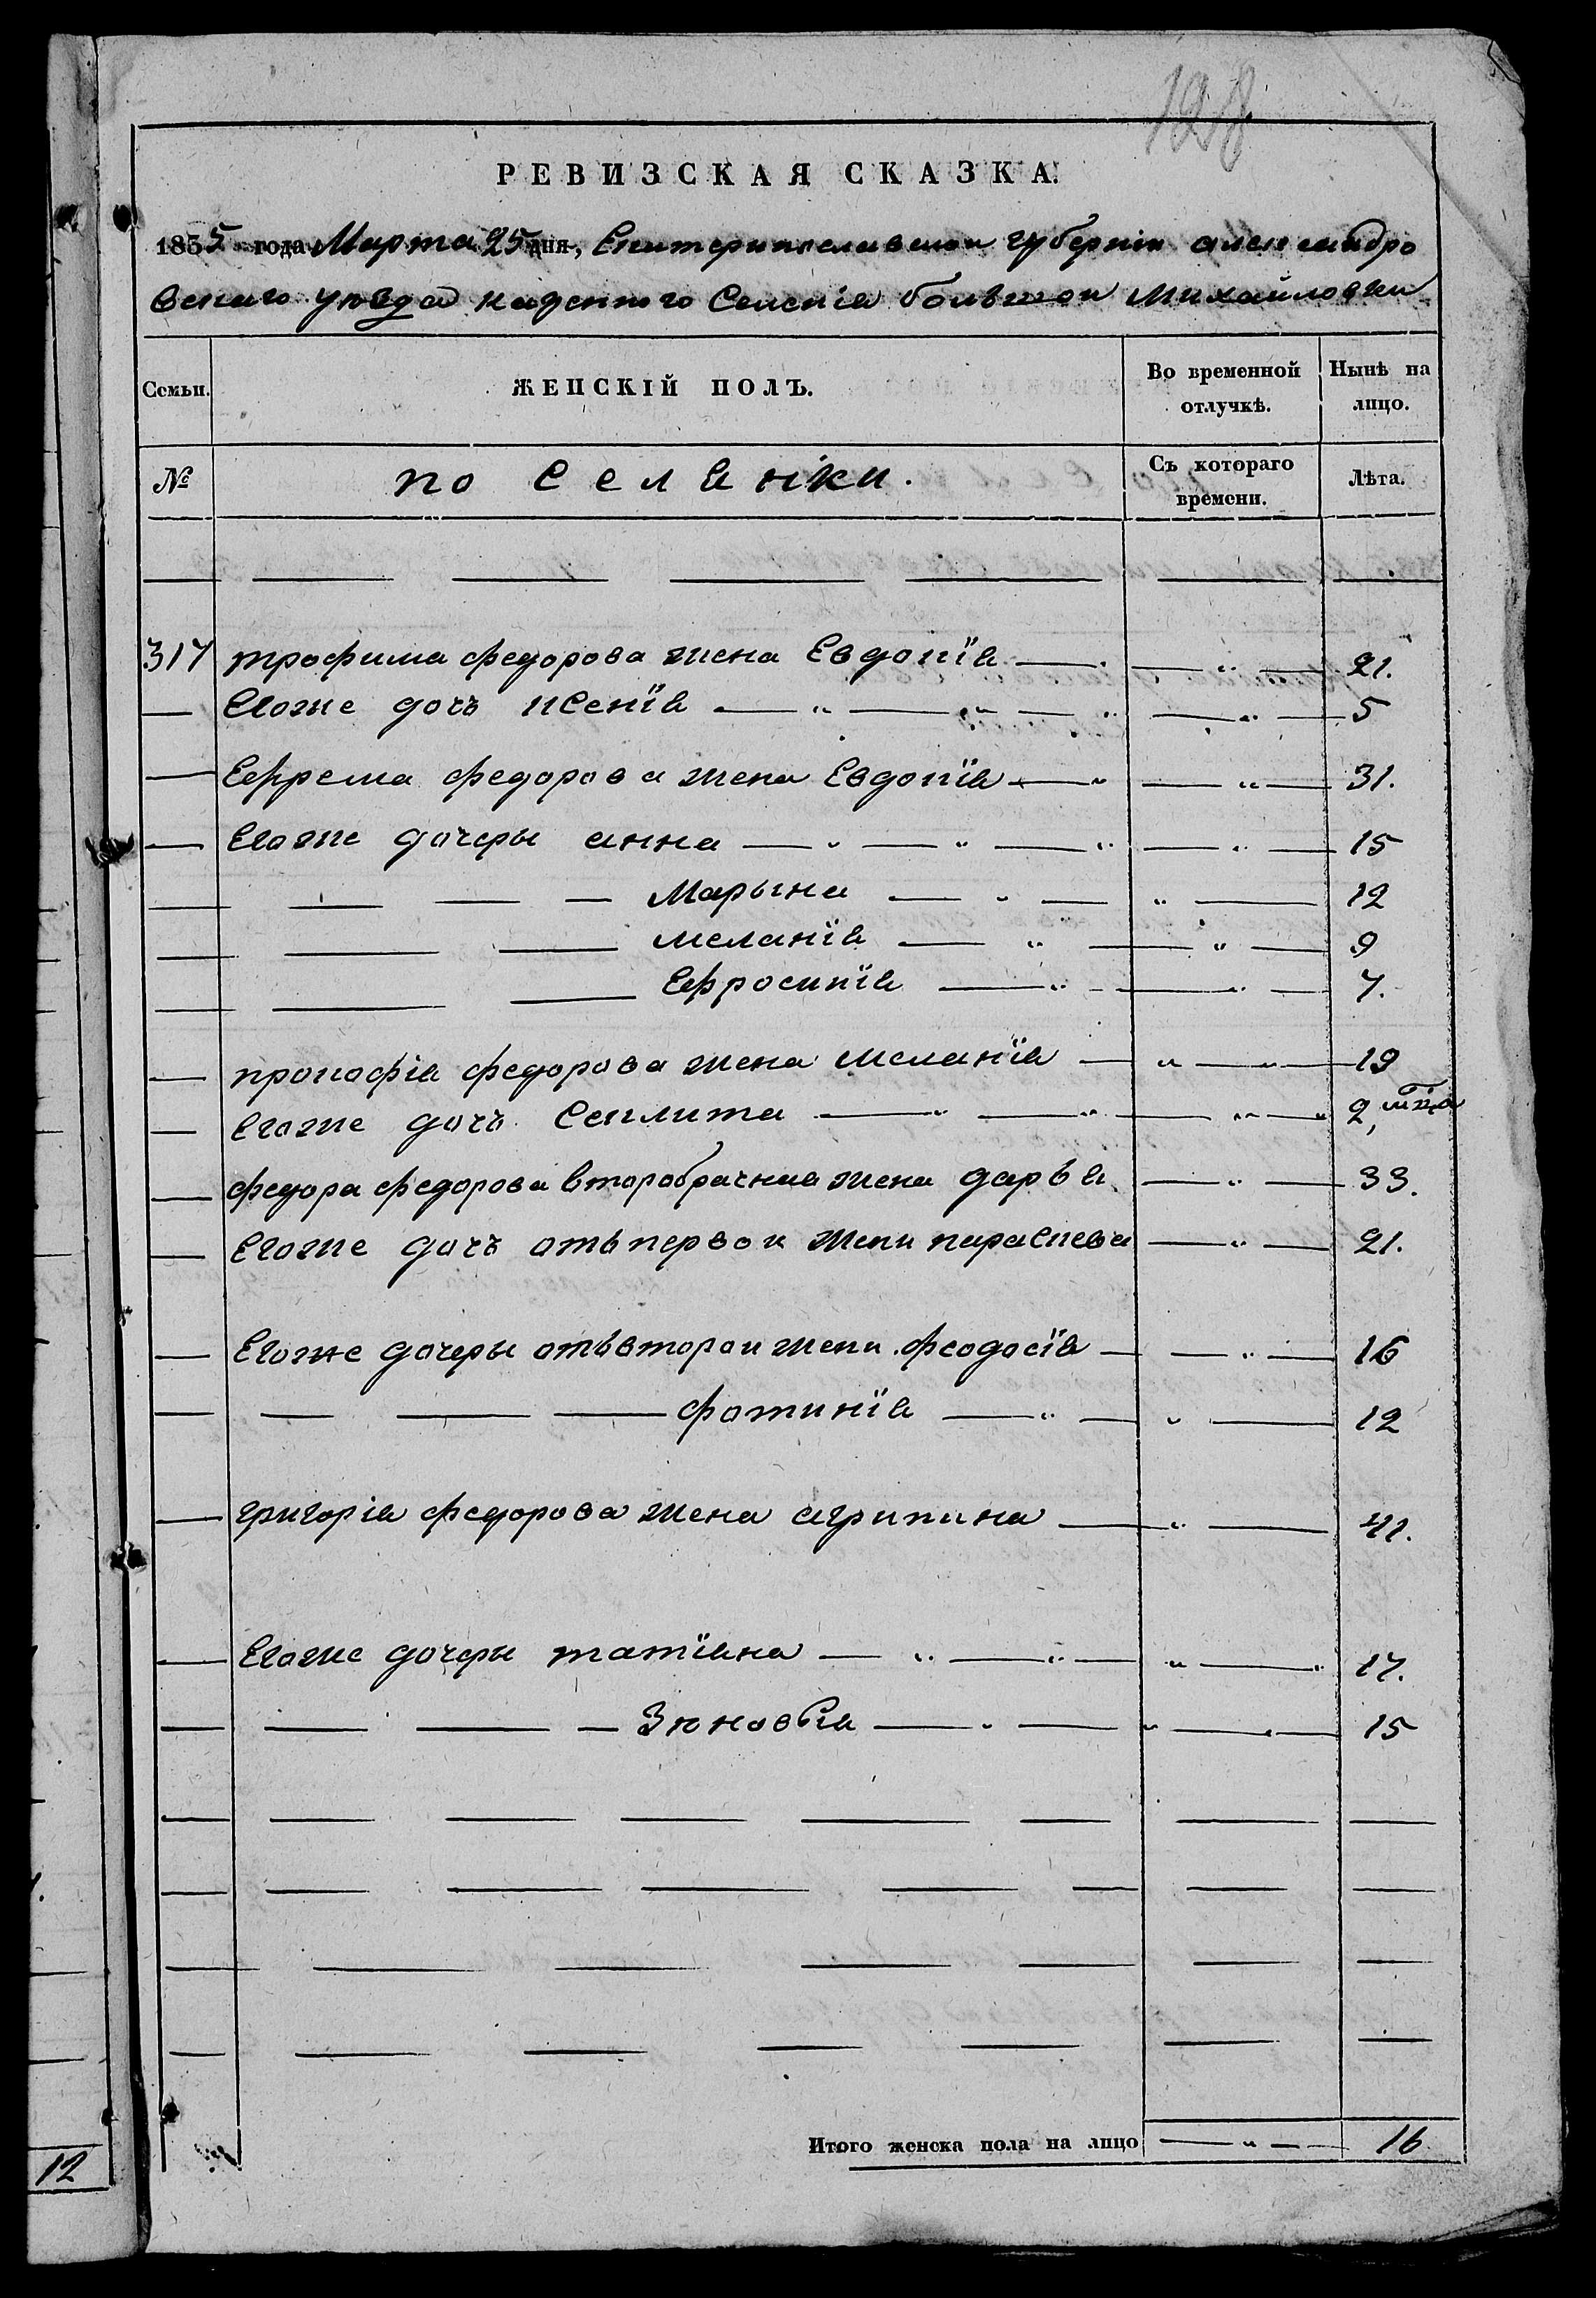 128
РЕВИЗСКАЯ СКАЗКА.
1855 года Марта 25 дня, Екатеринославской губерніи александро
вскаго уѣзда казенного Селенія большой Михайловки
Семьи. ЖЕНСКІЙ ПОЛЪ. Во временной отлучкѣ. Нынѣ на лицо.
№ поСелянки. Съ котораго времени. Лѣта.
317 трофима федорова жена Евдокія 21.
Егоже дочъ ксенія 5
Ефрема федорова жена Евдокія 31.
Егоже дочеры анна 15
Марына 12
меланія 9
Ефросинія 7.
прокофія федорова жена меланія 19
Егоже дочъ Секлита 2, мѣца
федора федорова второбрачная жена дарья 33.
Егоже дочъ отъ первой жени параскева 21.
Егоже дочеры отъ второй жени феодосія 16
фотинія 12
григорія федорова жена агрипина 41.
Егоже дочеры татіяна 17.
Зюновія 15
Итого женска пола на лицо 16
12